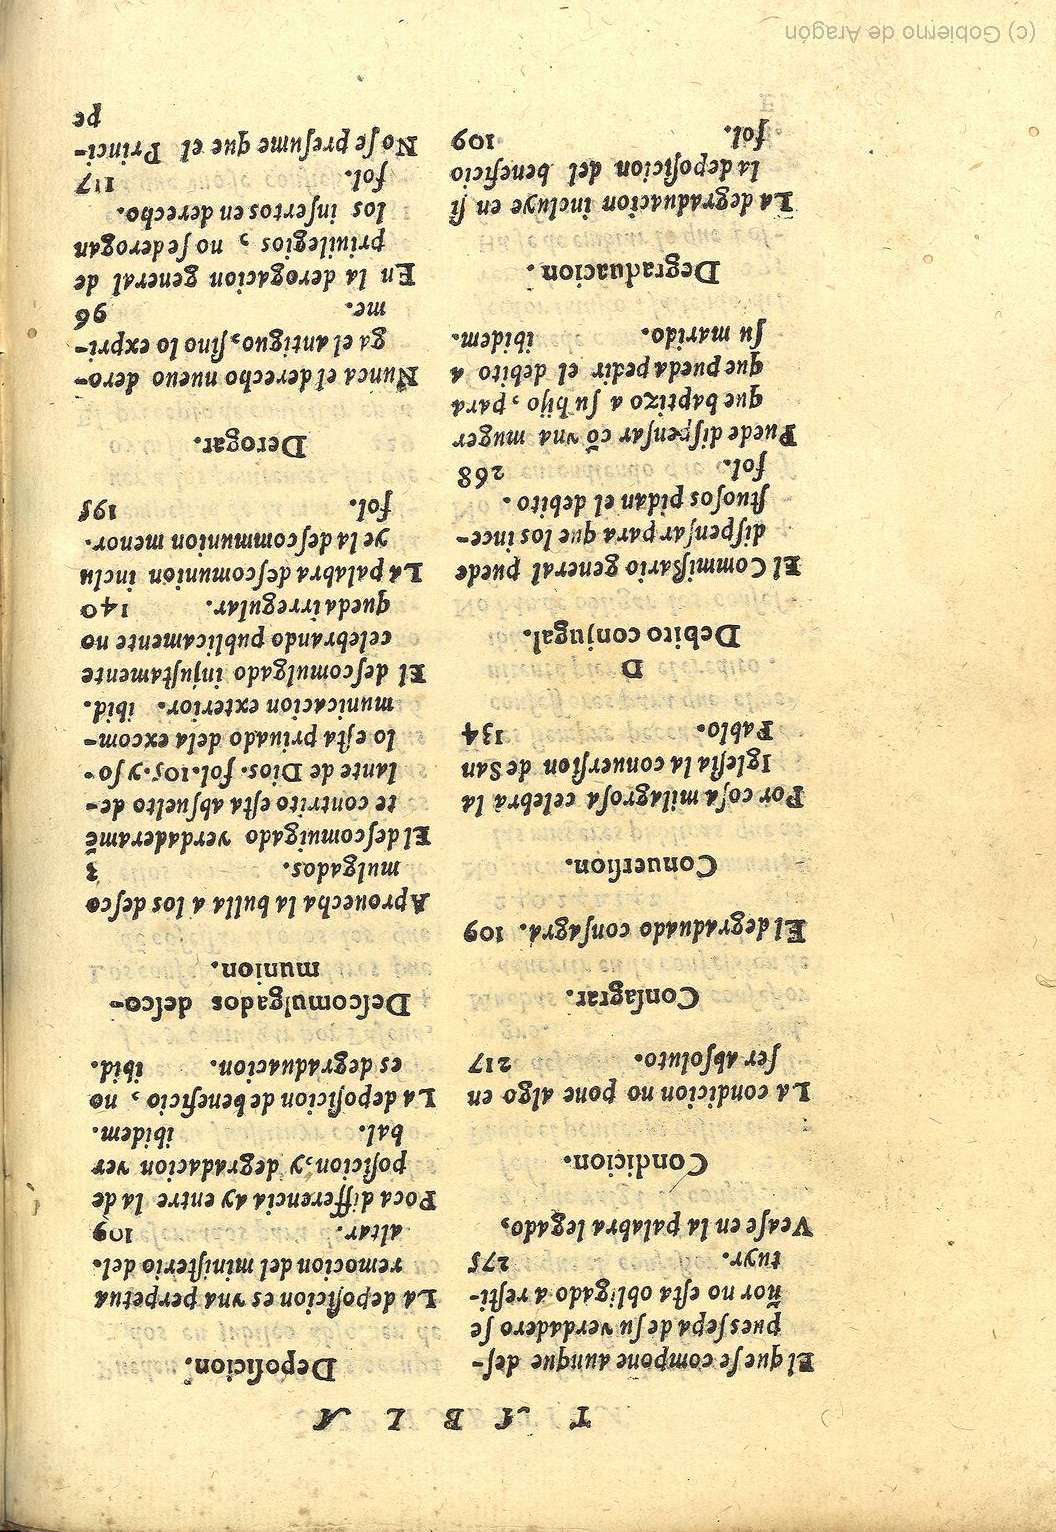 T A B L A
El que se compone aunque des-
pues sepa de su verdadero se
ñor no esta obligado a resti-
tuyr. 275
Vease en la palabra legado,
Condicion.
La condicion no pone algo en
ser absoluto. 217
Consagrar.
El degraduado consagra. 109
Conuersion.
Por cosa milagrosa celebra la
Iglesia la conuersion de San
Pablo. 134
D
Debito conjugal.
El Commissario general puede
dispensar para que los ince-
stuosos pidan el debito.
fol. 268
Puede dispensar cõ vna muger
que baptizo a su hijo, para
que pueda pedir el debito a
su marido. ibidem.
Degraduacion.
La degraduacion incluye en si
la deposicion del beneficio
fol. 109
Deposicion.
La deposicion es vna perpetua
remocion del ministerio del.
altar. 109
Poca differencia ay entre la de
posicion, y degradacion ver
bal. ibidem.
La deposicion de beneficio, no
es degraduacion. ibid.
Descomulgados desco-
munion.
Aprouecha la bulla a los desco
mulgados. 3
El descomulgado verdaderamẽ
te contrito esta absuelto de-
lante de Dios. fol. 105. y so-
lo esta priuado dela excom-
municacion exterior. ibid.
El descomulgado injustamente
celebrando publicamente no
queda irregular. 140
La palabra descomunion inclu
ye la descommunion menor.
fol. 195
Derogar.
Nunca el derecho nueuo dero-
ga el antiguo, sino lo expri-
me. 96
En la derogacion general de
priuilegios, no se derogan
los insertos en derecho.
fol. 117
No se presume que el Princi-
pe
(c) Gobierno de Aragón